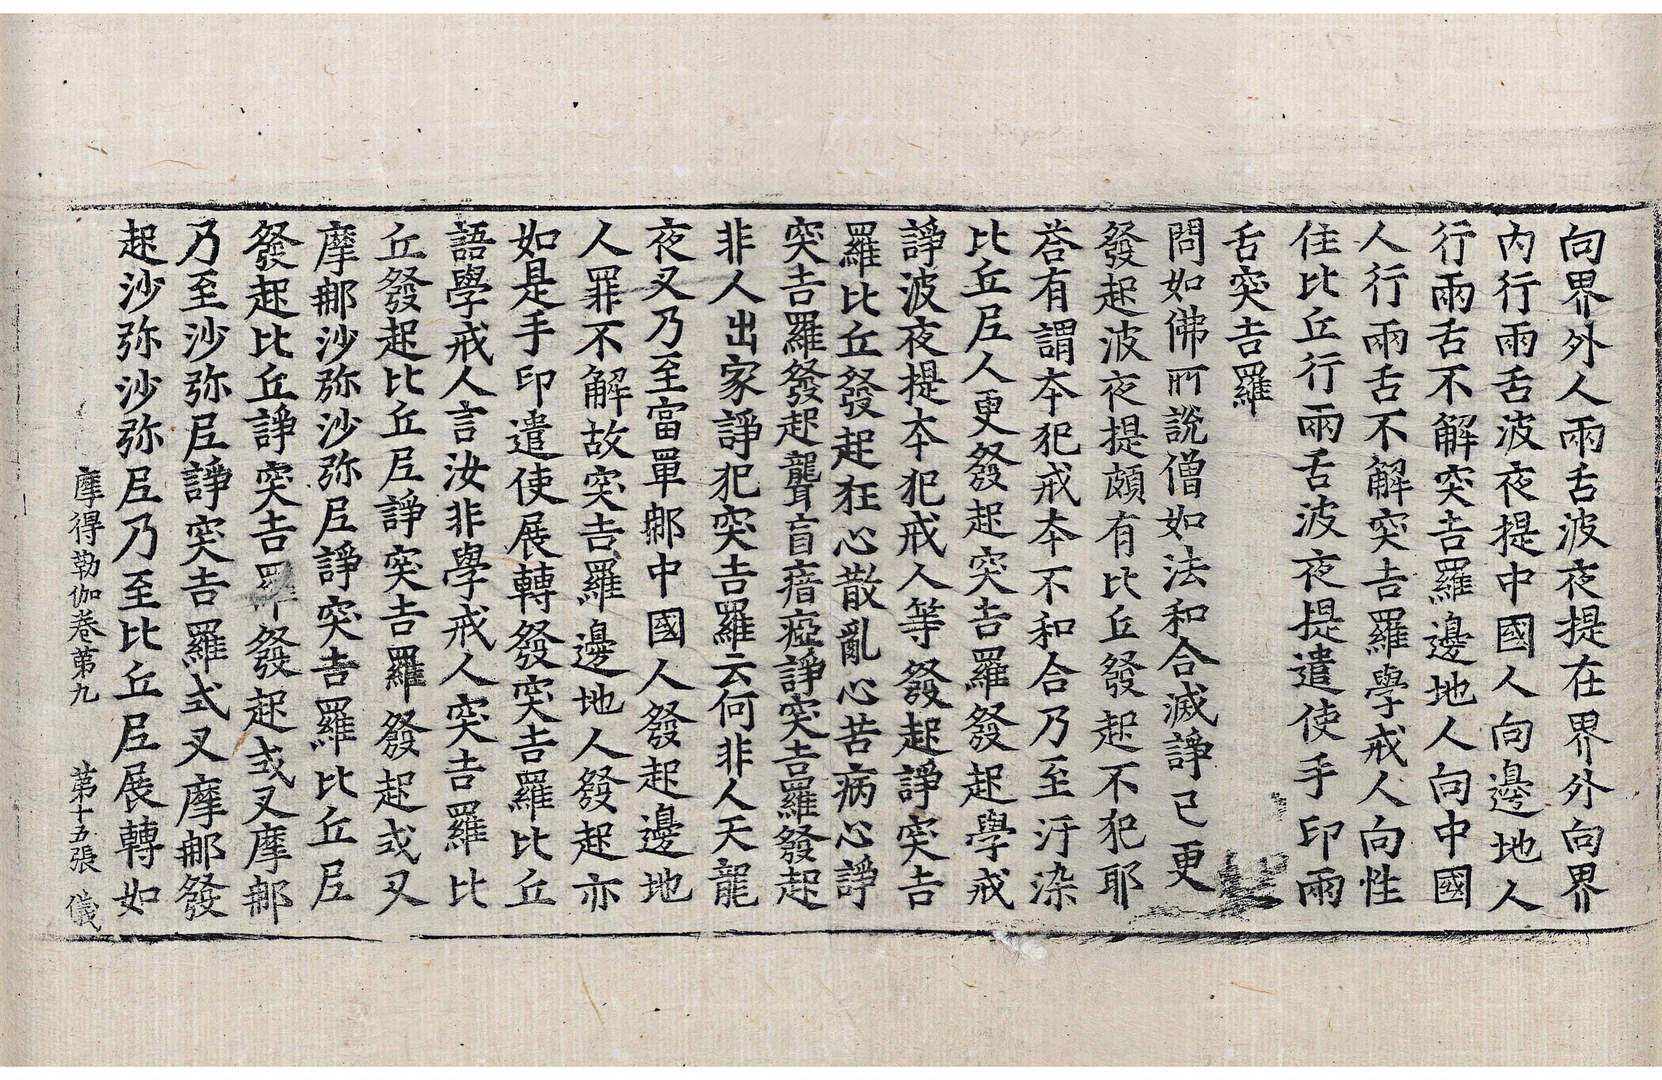 向界外人兩舌波夜提在界外向界
內行兩舌波夜提中國人向邊地人
行兩舌不解突吉羅邊地人向中國
人行兩舌不解突吉羅學戒人向性
住比丘行兩舌波夜提遣使手印兩
舌突吉羅
問如佛所說僧如法和合滅諍已更
發起波夜提頗有比丘發起不犯耶
荅有謂本犯戒本不和合乃至汙染
比丘尼人更發起突吉羅發起學戒
諍波夜提本犯戒人等發起諍突吉
羅比丘發起狂心散亂心苦病心諍
突吉羅發起聾盲瘖瘂諍突吉羅發起
非人出家諍犯突吉羅云何非人天龍
夜叉乃至富單那中國人發起邊地
人罪不解故突吉羅邊地人發起亦
如是手印遣使展轉發突吉羅比丘
語學戒人言汝非學戒人突吉羅比
丘發起比丘尼諍突吉羅發起式叉
摩那沙弥沙弥尼諍突吉羅比丘尼
發起比丘諍突吉羅發起式叉摩那
乃至沙弥尼諍突吉羅式叉摩那發
起沙弥沙弥尼乃至比丘尼展轉如
摩得勒伽卷第九　第十五張　儀